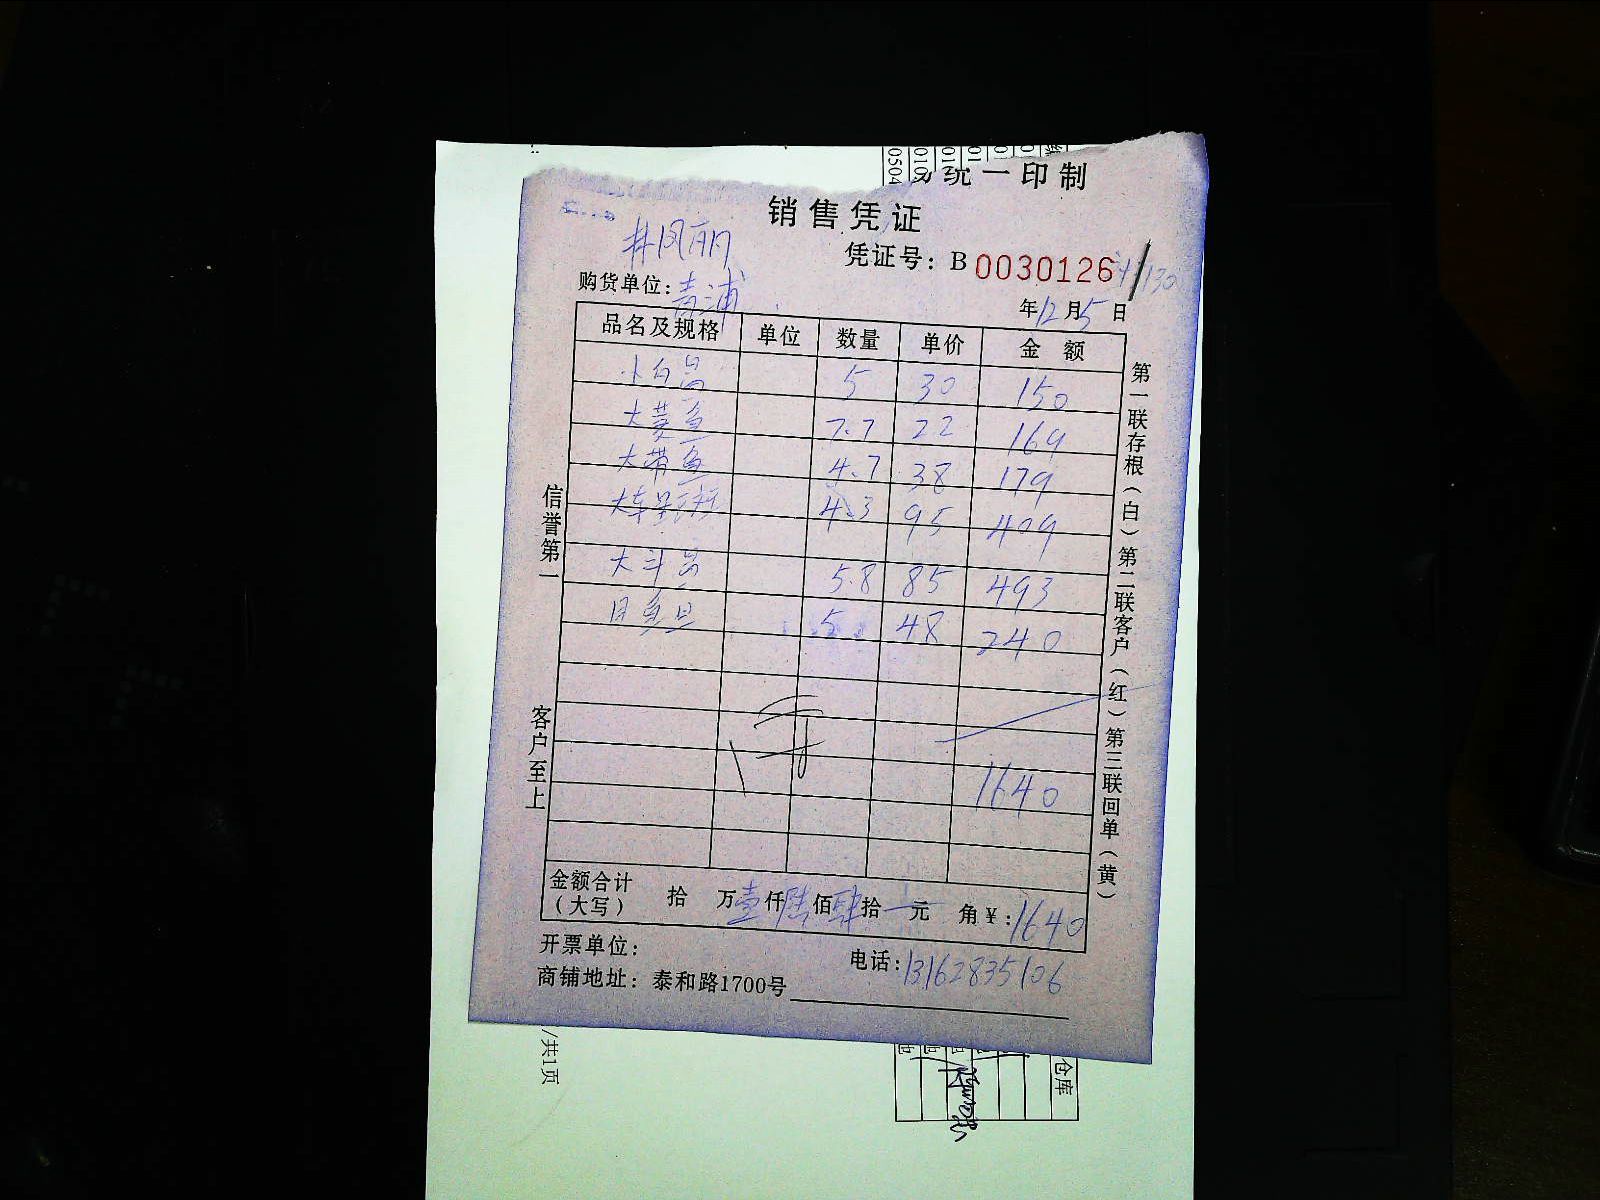 统一印制
销售凭证
井凤丽
凭证号：B 0030126
购货单位：青浦
年12月5日
品名及规格 单位 数量 单价 金额
小白 5 30 150
大菱鱼 7.7 22 169
大带鱼 4.7 38 179
大东星斑 4.3 95 409
大斗 5.8 85 493
目鱼旦 5 48 240
1640
金额合计（大写） 拾 万壹仟陆佰肆拾 元 角￥：1640
开票单位：
电话：13162835106
商铺地址：泰和路1700号
信誉第一
客户至上
第一联存根（白）第二联客户（红）第三联回单（黄）
0504
/共1页
仓库